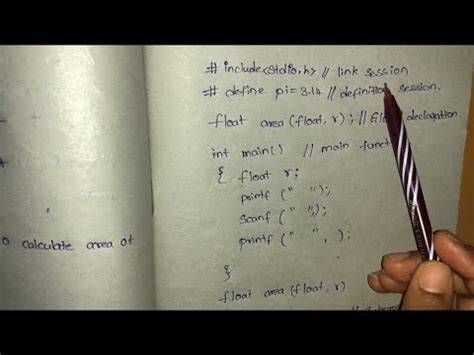 # include<stdio.h> // link session
# define pi=3.14 // definition session.
float area (float, r) ; // declaration.
int main() // main
{ float r;
printf (" ");
scanf (" ");
printf (" ", );
to calculate area of
}
float area (float, r)